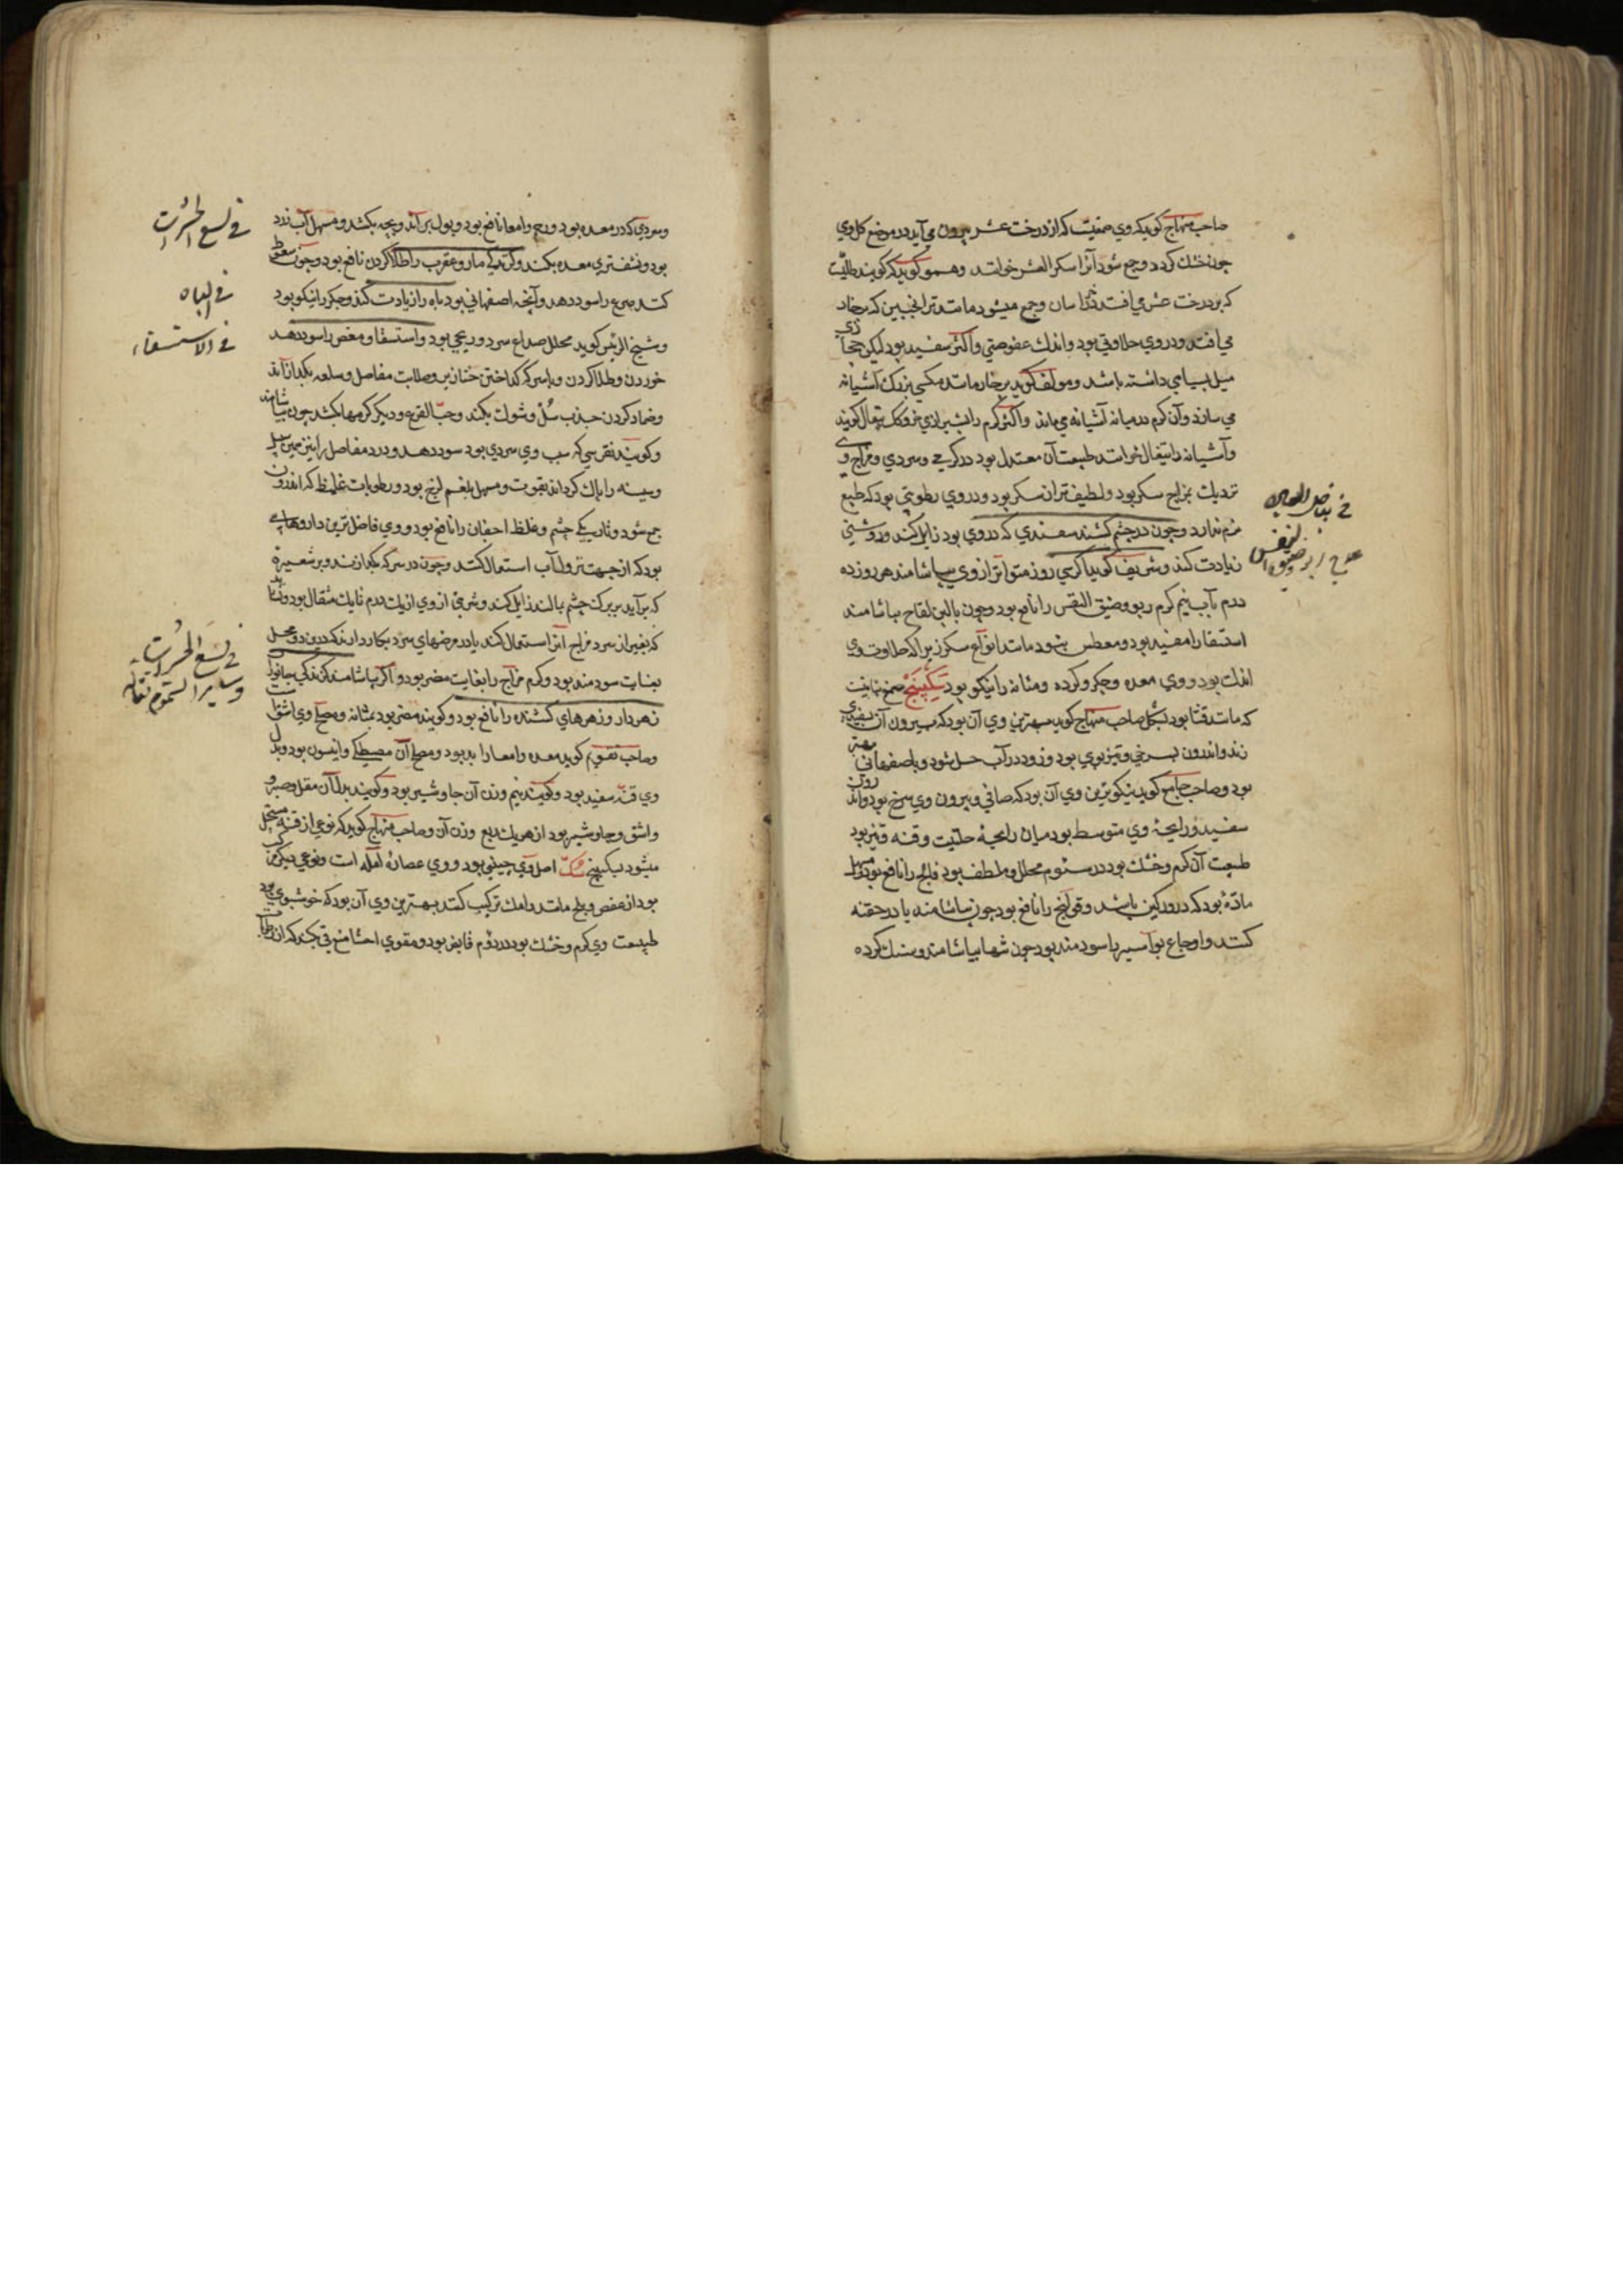 صاحب منهاج کوید که وی صمغیت که از درخت عشر بیرون می آید در موضع کل وی
چون خشک کردد وجمع شود آنرا سکر العشر خوانند وهمو کوید که کویند طلیت
که بر درخت عشر می افتد وجمع میشود مانند ترانجبین که بر خار
می افتد ودر وی حلاوتی بود واندک عفوصتی واکثر سفید بود لیکن حجازی
میل بسیاهی داشته باشد ومولف کوید بر خار مانند مکسی بزرک آشیانه
می سازد وآن کرم در میانه آشیانه می ماند واکثر کرم را بشیرازی تیغال کویند
وآشیانه را تیغال خوانند طبیعت آن معتدل بود در کرمی وسردی ومزاج وی
نزدیک بمزاج سکر بود ولطیف تر از سکر بود ودر وی رطوبتی بود که طبع
نرم ندارد وچون در چشم کشند سفیدی که در وی بود زایل کند وروشنی
زیادت کند وشریف کوید اکر سی روز متواتر از وی بیاشامند هر روز ده
درم بآب نیم کرم ربو وضیق النفس را نافع بود وچون با لبن لقاح بیاشامند
استسقا را مفید بود ومعطس نبود مانند انواع سکر زیرا که حلاوت وی
اندک بود ووی معده وجکر وکرده ومثانه را نیکو بود سکبینج صمغ نباتیت
که مانند قثا بود بشکل صاحب منهاج کوید بهترین وی آن بود که بیرون آن بسفیدی
زند واندرون بسرخی وتیزبوی بود وزود در آب حل شود وباصفهانی بهتر
بود وصاحب جامع کوید نیکوترین وی آن بود که صافی وبیرون وی سرخ بود واندرون
سفید ورایحهٔ وی متوسط بود میان رایحهٔ حلتیت وقنه وتیز بود
طبیعت آن کرم وخشک بود در سئوم محلل وملطف بود فالج را نافع بود ومسهل
مادّهٔ بود که در ورکین باشد وقولنج را نافع بود چون بیاشامند یا در حقنه
کنند واوجاع بواسیر را سودمند بود چون شهابیاشامند وسنک کرده
ضیق النفس
وسردی که در معده بود ورحم وامعا نافع بود وبول براند وبچه بکشد ومسهل آب زرد
بود معده بکند وکزندکی مار وعقرب را طلا کردن نافع بود وچون سعوط
کنند صرع را سود دهد وآنچه اصفهانی بود باه را زیادت کند وجکر را نیکو بود
وشیخ الرئیس کوید محلل صداع سرد وریحی بود واستسقا ومغص را سود دهد
خوردن وطلا کردن وبا سرکه کداختن خنازیر وصلابت مفاصل وسلعه بکدازاند
وضماد کردن جذب سُلّ وشوک بکند وحبّ القرع ودیکر کرمها بکشد چون بیاشامند
وکویند نقرسی که سبب وی سردی بود سود دهد ودرد مفاصل را نیز همین سبیل
وسینه را پاک کرداند بقوت ومسهل بلغم لزج بود ورطوبات غلیظ که اندرون
جمع شود وتاریکی چشم وغلظ اجفان را نافع بود ووی فاضل ترین داروهایی
بود که از جهت نزول آب استعمال کنند وچون در سرکه بکدازند وبر شعیرهٔ
که برآید بر برک چشم بمالند زایل کند وشربتی از وی از یک درم تا یک مثقال بود
که بغیر از سرد مزاج آنرا استعمال کند یا در مرضهای سرد بکار دارند که درین دو محل
بغایت سودمند بود وکرم مزاج را بغایت مضر بود واکر بیاشامند کزندکی جانوران
زهردار وزهرهای کشنده را نافع بود وکویند مضر بود بمثانه ومصلح وی اشق است
وصاحب تقویم کوید معده وامعا را بد بود ومصلح آن مصطکی وانیسون بود وبدل
وی قنه سفید بود وکویند نیم وزن آن جاوشیر بود وکویند بدل آن مقل وصبر
واشق وجاوشیر بود از هر یک ربع وزن آن وصاحب منهاج کوید که نوعی از قنه مستحیل
میشود بسکبینج سُکّ اصل وی چینی بود ووی عصارهٔ آمله است ونوعی دیکر مرکب
بود از عفص وبلح مانند رامک ترکیب کنند بهترین وی آن بود که خوشبوی بود
طبیعت وی کرم وخشک بود در دوّم قابض بود ومقوی احشا منع قی بکند که از
فی لسع الحشرات
فی الباه
فی الاستسقاء
فی لسع الحشرات
وسایر السموم